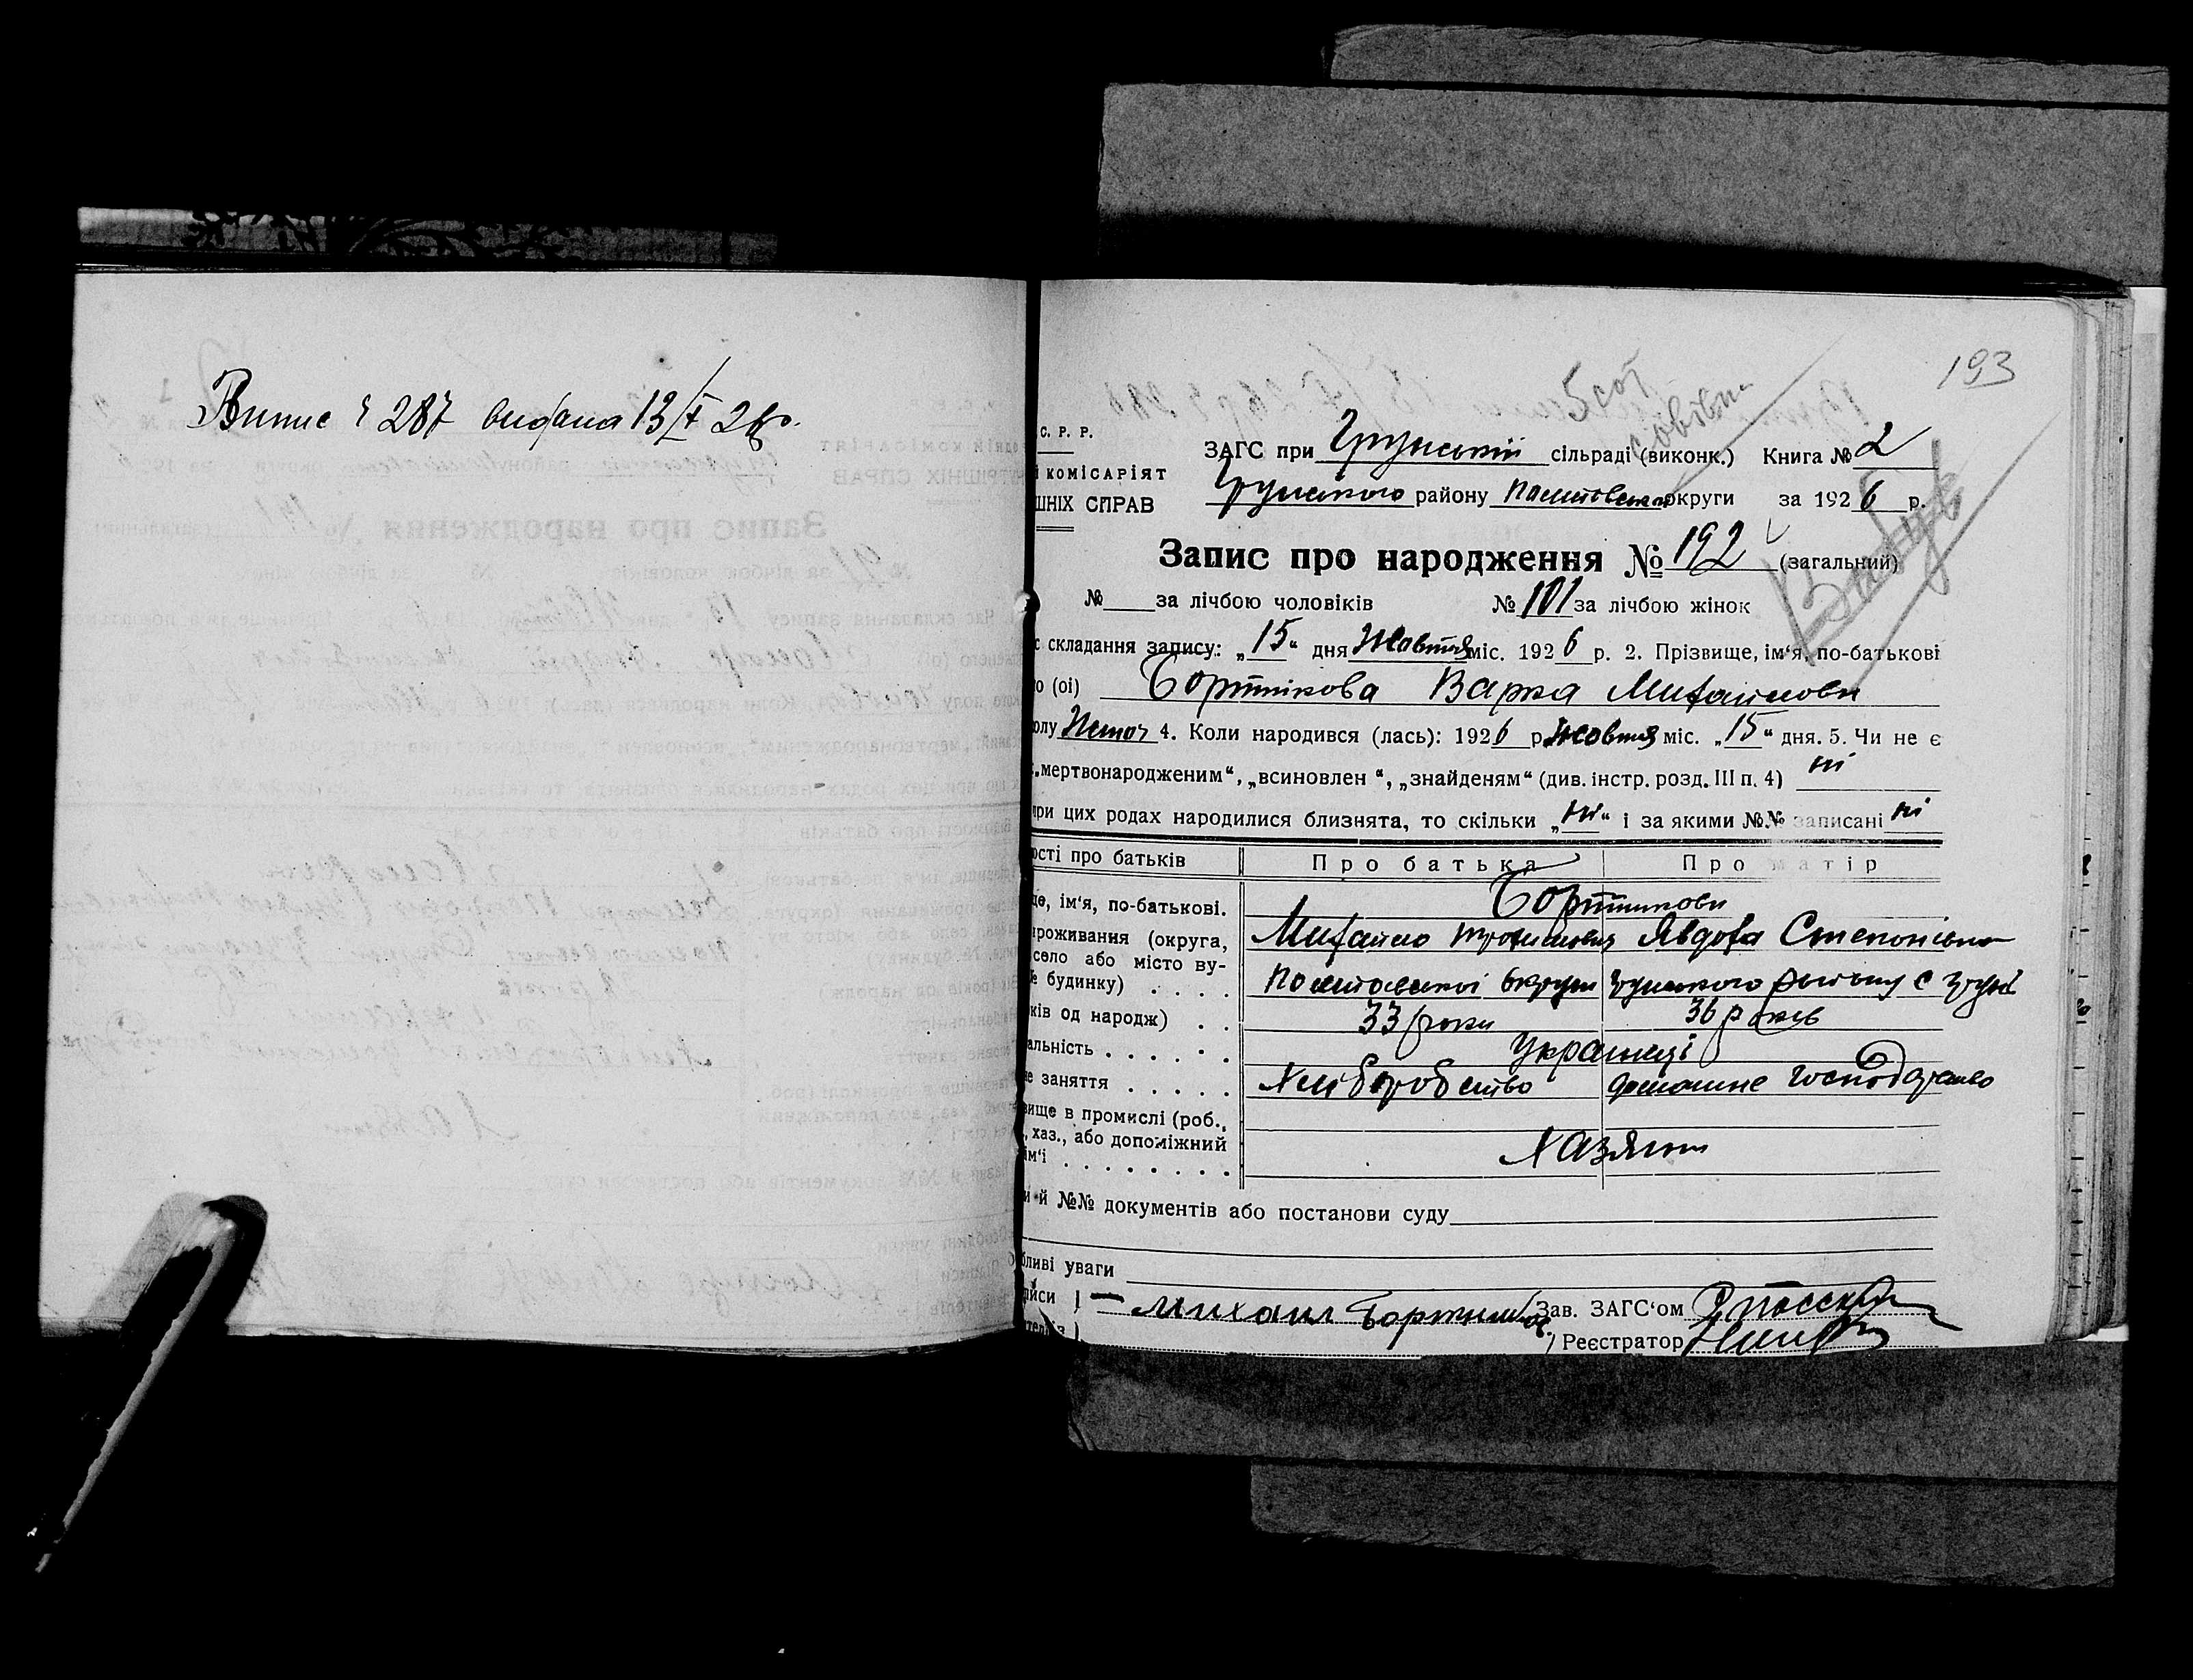 Випис ч 287 видана 13/X 26р.
193
5 сот
С. Р. Р.
ЗАГС при Грунській сільраді (виконк.) Книга № 2
КОМІСАРІЯТ
Грунського району Полтавської округи за 1926 р.
ШНІХ СПРАВ
Запис про народження № 192 (загальний)
№ за лічбою чоловіків № 101 за лічбою жінок
с складання запису: „15“ дня Жовтня міс. 1926 р. 2. Прізвище, ім‘я, по-батькові
о (ої) Бортнікова Варка Михайлови
олу Жіноч 4. Коли народився (лась): 1926 р. Жовтня міс. „15“ дня. 5. Чи не є
„мертвонародженим“, „всиновлен “, „знайденям“ (див. інстр. розд. III п. 4) ні
при цих родах народилися близнята, то скільки „ні“ і за якими №№ записані ні
ості про батьків Про батька Про матір
ще, ім‘я, по-батькові. Бортникови
Михайло Явдоха Степонівна
роживання (округа,
село або місто ву-
№ будинку) . . . . Полтавської округи Грунського району с Груні
ків од народж) . . 33 роки 36 років
альність . . . . . . Українці
не заняття . . . . . Хліборобство домашне господарство
вище в промислі (роб.,
, хаз., або допоміжний Хазяїни
ім‘ї . . . . . . . .
и й №№ документів або постанови суду
бливі уваги
писи — Михаил Бортников. Зав. ЗАГС‘ом
Реєстратор